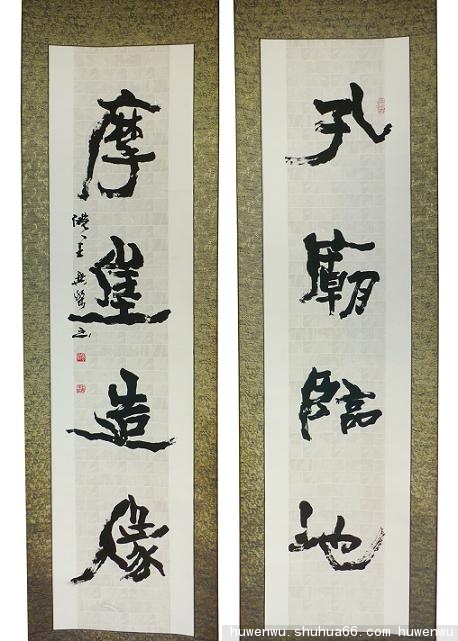 孔廟臨池
摩崖造像
huwenwu. shuhua66. com huwenwu